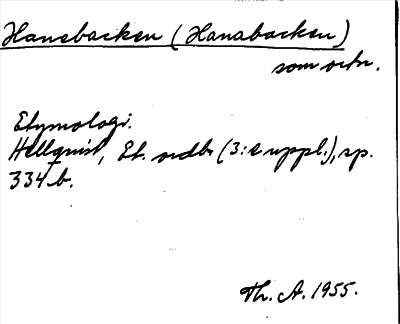 Hanebacken (Hanabacken)
som ortn.
Etymologi.
Hellquist, Et. ordb. (3:e uppl.), sp.
334 b.
Th. A. 1955.